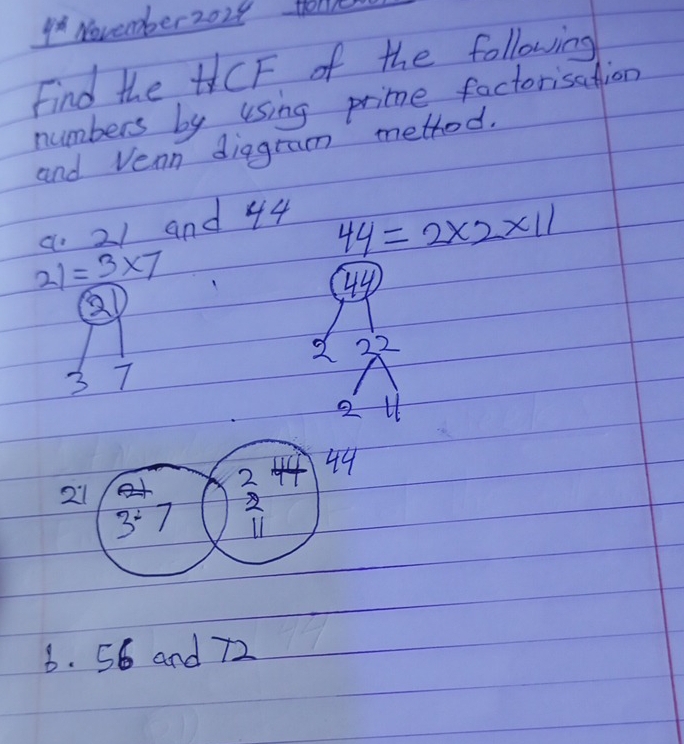 4th November 2024
Find the HCF of the following
numbers by using prime factorisation
and Venn diagram method.
a. 21 and 44
21 = 3×7
44 = 2×2×11
21
3 7
44
2 22
2 11
21
21
3 7
2 44
2
11
44
b. 56 and 72